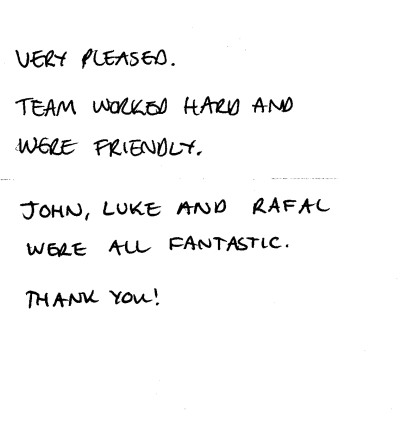 VERY PLEASED.
TEAM WORKED HARD AND
WERE FRIENDLY.
JOHN, LUKE AND RAFAL
WERE ALL FANTASTIC.
THANK YOU!